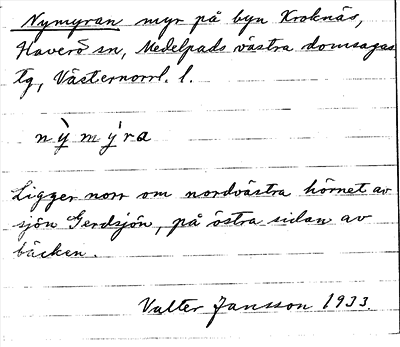 Nymyran myr på byn Kroknäs,
Haverö sn, Medelpads västra domsagas
tg, Västernorrl. l.
nỳmýra
Ligger norr om nordvästra hörnet av
sjön Gerdsjön, på östra sidan av
bäcken.
Valter Jansson 1933.